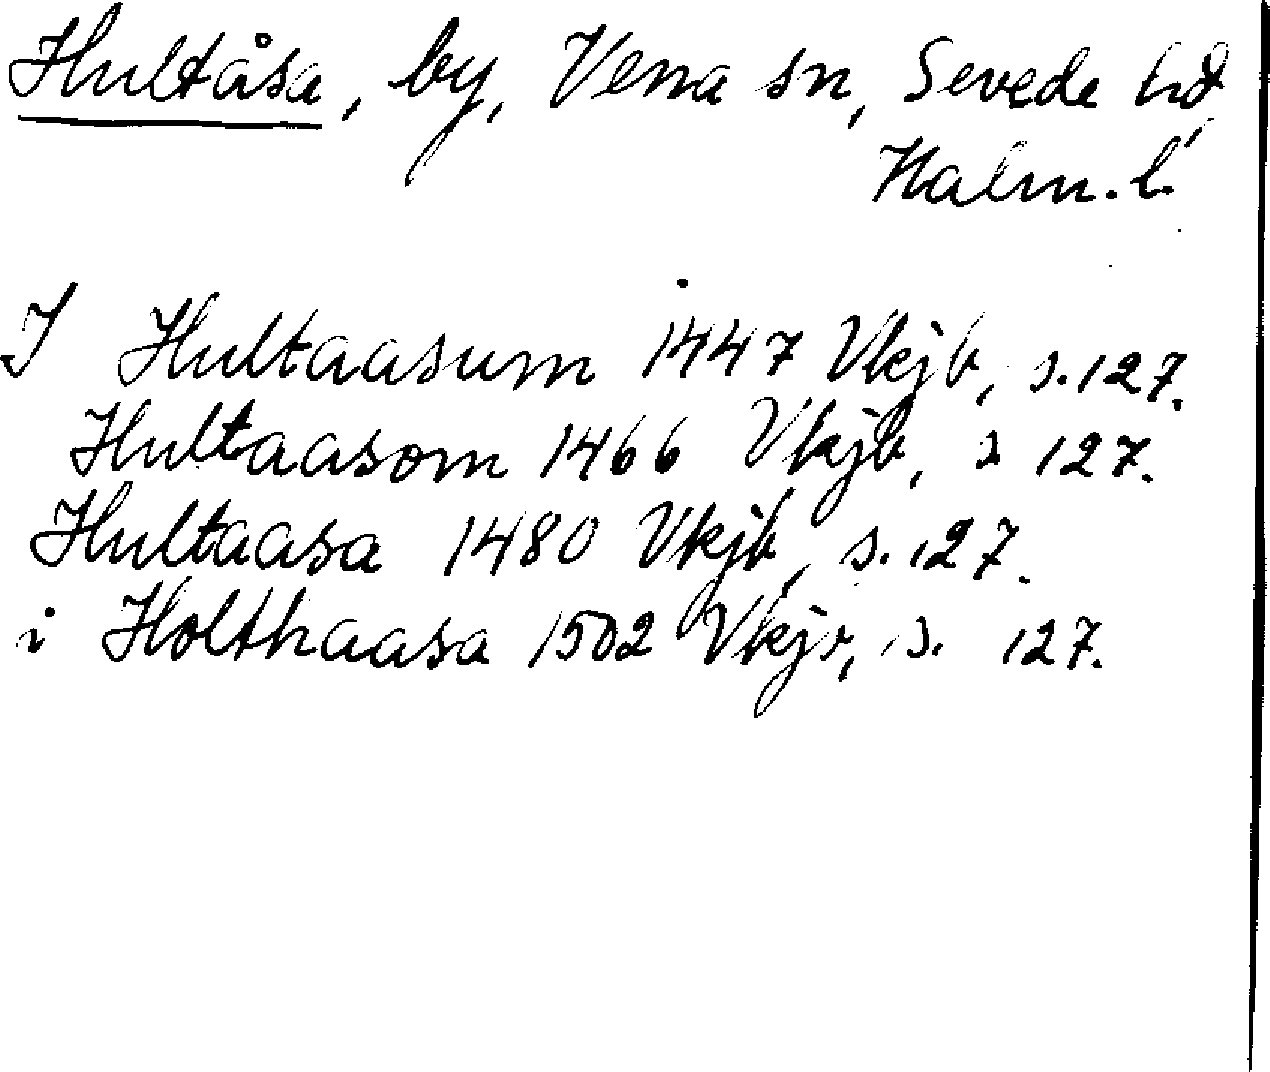 Hultåsa, by, Vena sn, Sevede hd,
Kalm. l.
I Hultaasum 1447 Vkjb, s. 127.
Hultaasom 1466 Vkjb, s 127.
Hultaasa 1480 Vkjb, s. 127.
i Holthaasa 1502 Vkjb, s. 127.